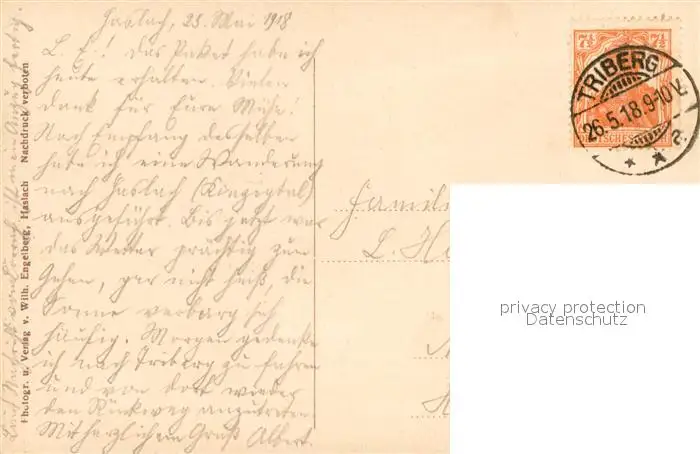 Haslach, 25. Mai 1918
L. E.! Das Paket habe ich
heute erhalten. Vielen
Dank für Eure Mühe!
Nach Empfang desselben
habe ich eine Wanderung
nach Haslach (Kinzigtal)
ausgeführt. Bis jetzt war
das Wetter prächtig zum
Gehen, gar nicht heiß, die
Sonne verbarg sich
häufig. Morgen gedenke
ich nach Triberg zu fahren
und von dort wieder
den Rückweg anzutreten.
Mit herzlichem Gruß Albert.
ist mein Anzug fertig.
Photogr. u. Verlag v. Wilh. Engelberg, Haslach Nachdruck verboten
7½ 7½
DEUTSCHES
TRIBERG
26.5.18.9-10V.
* * 2.
Famili
L. H
privacy protection
Datenschutz